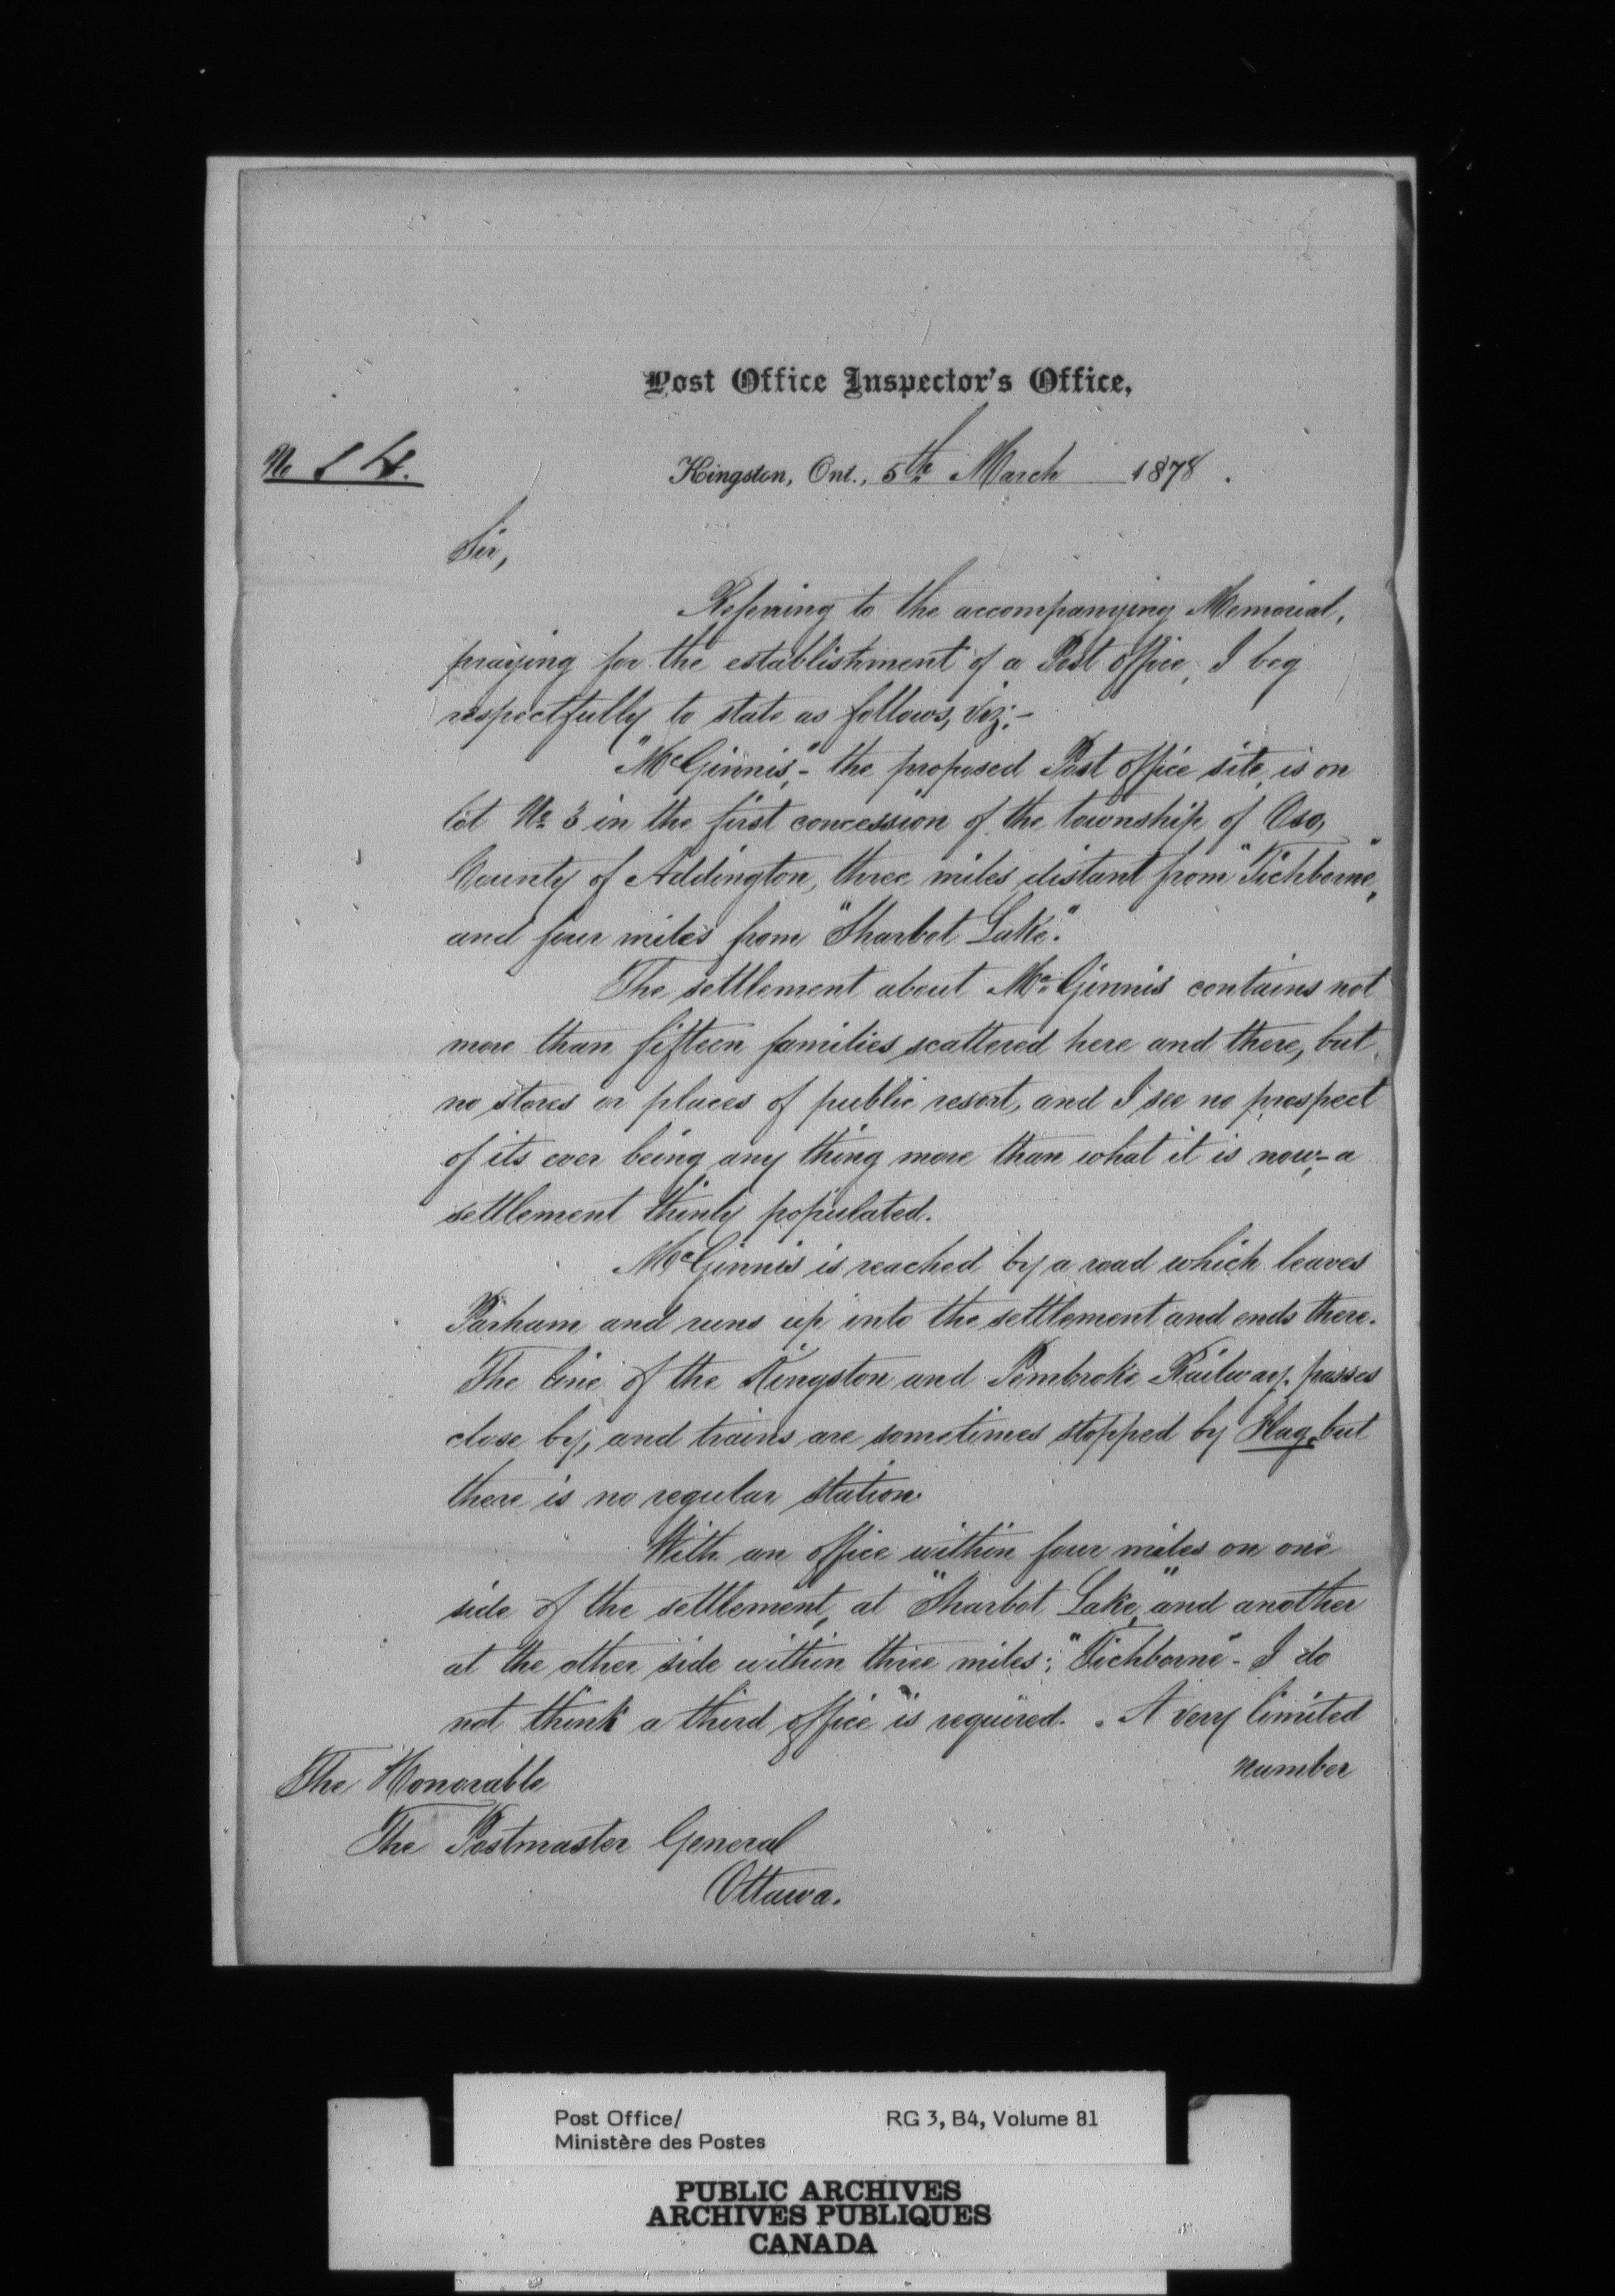 Post Office Inspector's Office,
No
Kingston, Ont., 5th March 1878.
Sir,
Referring to the accompanying Memorial,
praying for the establishment of a Post office, I beg
respectfully to state as follows, viz:-
"McGinnis,"- the proposed Post office site, is on
lot No 3 in the first concession of the township of Oso,
County of Addington, three miles distant from "Tichborne",
and four miles from "Sharbot Lake."
The settlement about McGinnis contains not
more than fifteen families scattered here and there, but
no stores or places of public resort, and I see no prospect
of its ever being any thing more than what it is now,- a
settlement thinly populated.
McGinnis is reached by a road which leaves
Parham and runs up into the settlement and ends there.
The line of the Kingston and Pembroke Railway passes
close by, and trains are sometimes stopped by Flag, but
there is no regular station.
With an office within four miles on one
side of the settlement, at "Sharbot Lake", and another
at the other side within three miles; "Tichborne"- I do
not think a third office is required. A very limited
number
The Honorable
The Postmaster General
Ottawa.
Post Office/
Ministère des Postes
RG 3, B4, Volume 81
PUBLIC ARCHIVES
ARCHIVES PUBLIQUES
CANADA